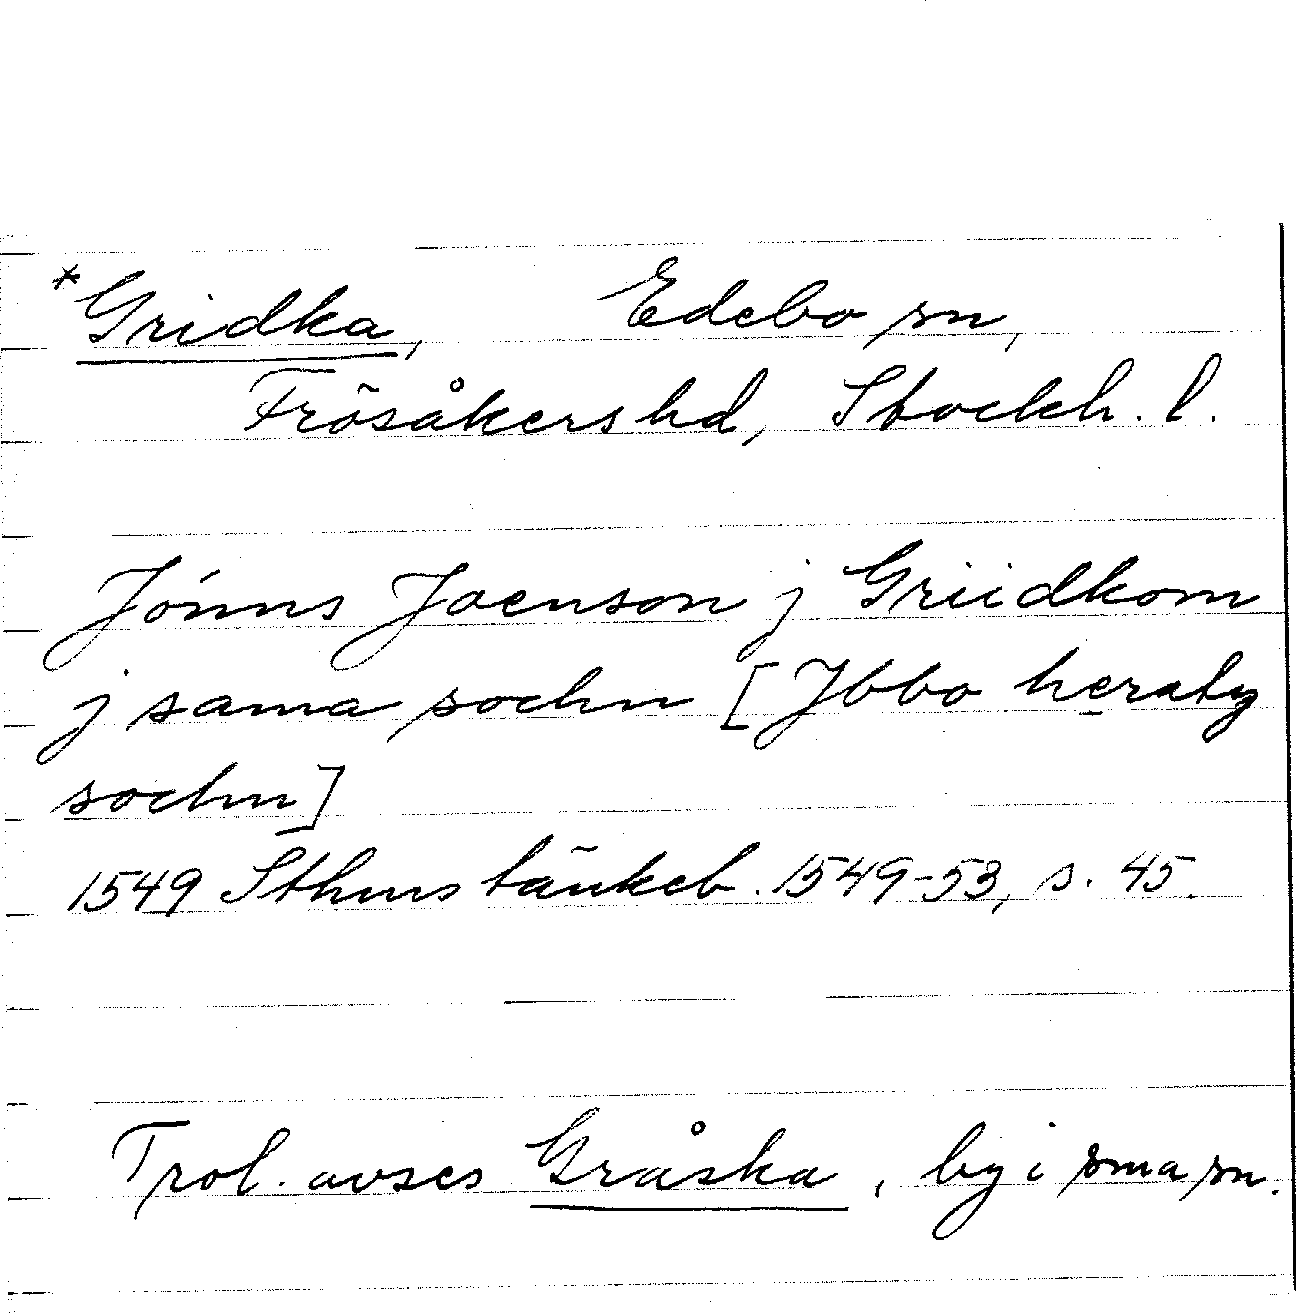 *Gridka, Edebo sn,
Frösåkers hd, Stockh. l.
Jönns Joenson j Griidkom
j sama sochn [Jbbo heratz
sochn]
1549 Sthms tänkeb. 1549-53, s. 45.
Trol. avses Gråska, by i sma sn.